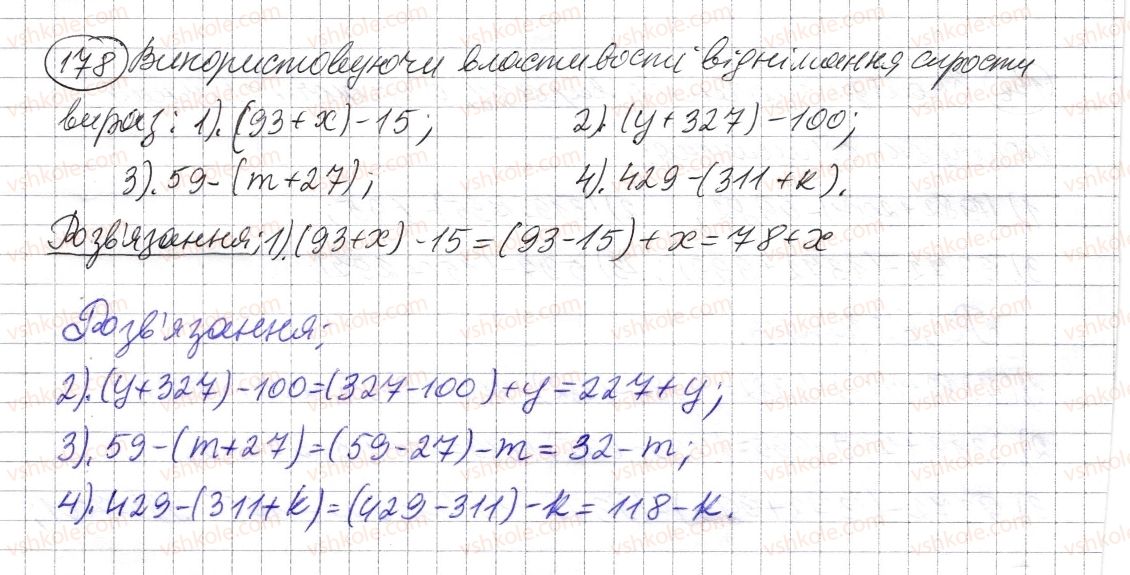 178 Використовуючи властивості віднімання спрости
вираз: 1). (93+x)-15; 2). (y+327)-100;
3). 59-(m+27); 4). 429-(311+k).
Розв'язання; 1). (93+x)-15=(93-15)+x=78+x
Розв'язання;
2). (y+327)-100=(327-100)+y=227+y;
3). 59-(m+27)=(59-27)-m=32-m;
4). 429-(311+k)=(429-311)-k=118-k.